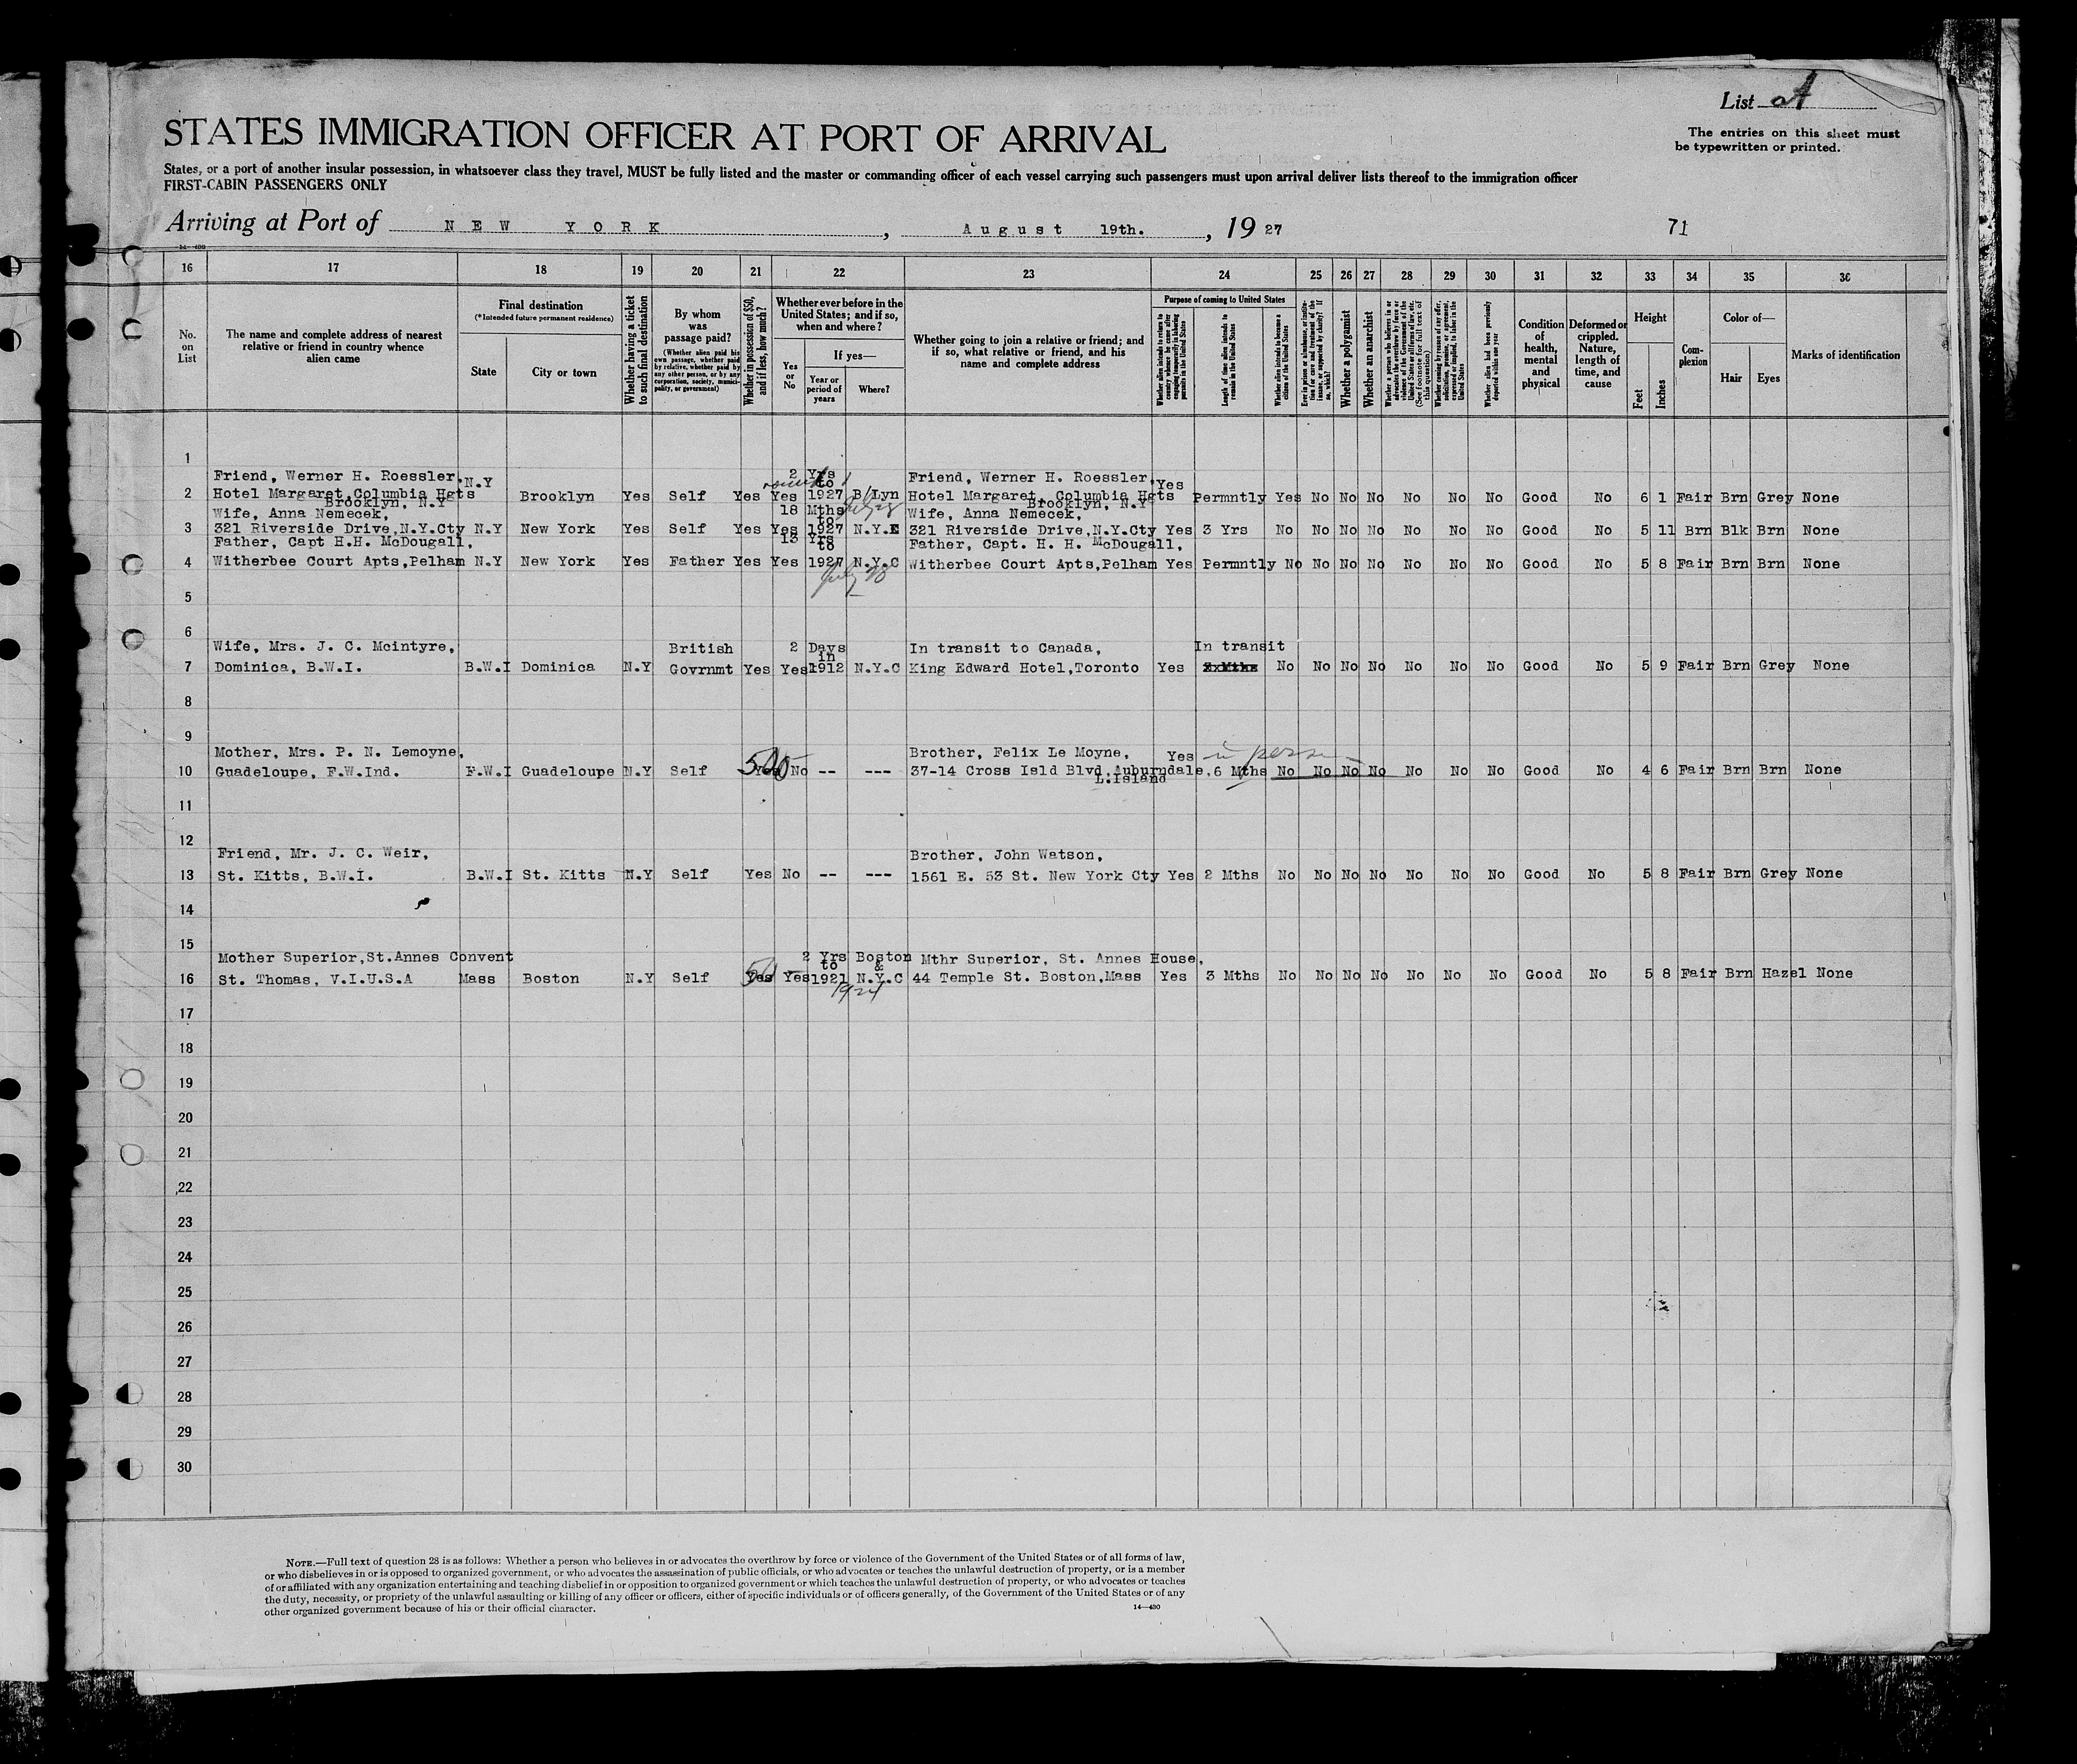 List A
The entries on this sheet must
be typewritten or printed.
STATES IMMIGRATION OFFICER AT PORT OF ARRIVAL
States, or a port of another insular possession, in whatsoever class they travel, MUST be fully listed and the master or commanding officer of each vessel carrying such passengers must upon arrival deliver lists thereof to the immigration officer
FIRST-CABIN PASSENGERS ONLY
Arriving at Port of NEW YORK, August 19th., 1927
71
14—430
16 17 18 19 20 21 22 23 24 25 26 27 28 29 30 31 32 33 34 35 36
No. on List
The name and complete address of nearest relative or friend in country whence alien came
Final destination
(*Intended future permanent residence)
State
City or town
Whether having a ticket to such final destination
By whom was passage paid?
(Whether alien paid his own passage, whether paid by relative, whether paid by any other person, or by any corporation, society, municipality, or government)
Whether in possession of $50, and if less, how much?
Whether ever before in the United States; and if so, when and where?
Yes or No
If yes—
Year or period of years
Where?
Whether going to join a relative or friend; and if so, what relative or friend, and his name and complete address
Purpose of coming to United States
Whether alien intends to return to country whence he came after engaging temporarily in laboring pursuits in the United States
Length of time alien intends to remain in the United States
Whether alien intends to become a citizen of the United States
Ever in prison or almshouse, or institution for care and treatment of the insane, or supported by charity? If so, which?
Whether a polygamist
Whether an anarchist
Whether a person who believes in or advocates the overthrow by force or violence of the Government of the United States or all forms of law, etc. (See footnote for full text of this question)
Whether coming by reason of any offer, solicitation, promise, or agreement, expressed or implied, to labor in the United States
Whether alien had been previously deported within one year
Condition of health, mental and physical
Deformed or crippled. Nature, length of time, and cause
Height
Feet
Inches
Complexion
Color of—
Hair
Eyes
Marks of identification
1
Friend, Werner H. Roessler, N.Y 2 Yrs to Friend, Werner H. Roessler, Yes
2 Hotel Margaret, Columbia Hgts Brooklyn Yes Self Yes Yes 1927 B/Lyn Hotel Margaret, Columbia Hgts Permntly Yes No No No No No No Good No 6 1 Fair Brn Grey None
Brooklyn, N.Y Brooklyn, N.Y
Wife, Anna Nemecek, 18 Mths to July 28 Wife, Anna Nemecek,
3 321 Riverside Drive,N.Y.Cty N.Y New York Yes Self Yes Yes 1927 N.Y.C 321 Riverside Drive,N.Y.Cty Yes 3 Yrs No No No No No No No Good No 5 11 Brn Blk Brn None
Father, Capt H.H. McDougall, 13 Yrs to Father, Capt. H. H. McDougall,
4 Witherbee Court Apts,Pelham N.Y New York Yes Father Yes Yes 1927 N.Y.C Witherbee Court Apts,Pelham Yes Permntly No No No No No No No Good No 5 8 Fair Brn Brn None
July 28
5
6
Wife, Mrs. J. C. Mcintyre, British 2 Days in In transit to Canada, In transit
7 Dominica, B.W.I. B.W.I Dominica N.Y Govrnmt Yes Yes 1912 N.Y.C King Edward Hotel,Toronto Yes No No No No No No No Good No 5 9 Fair Brn Grey None
8
9
Mother, Mrs. P. N. Lemoyne, Brother, Felix Le Moyne, Yes
10 Guadeloupe, F.W.Ind. F.W.I Guadeloupe N.Y Self 500 Yes No -- --- 37-14 Cross Isld Blvd,Auburndale, 6 Mths No No No No No No No Good No 4 6 Fair Brn Brn None
L.Island
11
12
Friend, Mr. J. C. Weir, Brother, John Watson,
13 St. Kitts, B.W.I. B.W.I St. Kitts N.Y Self Yes No -- --- 1561 E. 53 St. New York Cty Yes 2 Mths No No No No No No No Good No 5 8 Fair Brn Grey None
14
15
Mother Superior,St.Annes Convent 2 Yrs to Boston & Mthr Superior, St. Annes House,
16 St. Thomas, V.I.U.S.A Mass Boston N.Y Self 50 Yes Yes 1921 N.Y.C 44 Temple St. Boston,Mass Yes 3 Mths No No No No No No No Good No 5 8 Fair Brn Hazel None
1924
17
18
19
20
21
22
23
24
25
26
27
28
29
30
NOTE.—Full text of question 28 is as follows: Whether a person who believes in or advocates the overthrow by force or violence of the Government of the United States or of all forms of law,
or who disbelieves in or is opposed to organized government, or who advocates the assassination of public officials, or who advocates or teaches the unlawful destruction of property, or is a member
of or affiliated with any organization entertaining and teaching disbelief in or opposition to organized government or which teaches the unlawful destruction of property, or who advocates or teaches
the duty, necessity, or propriety of the unlawful assaulting or killing of any officer or officers, either of specific individuals or of officers generally, of the Government of the United States or of any
other organized government because of his or their official character.
14—430